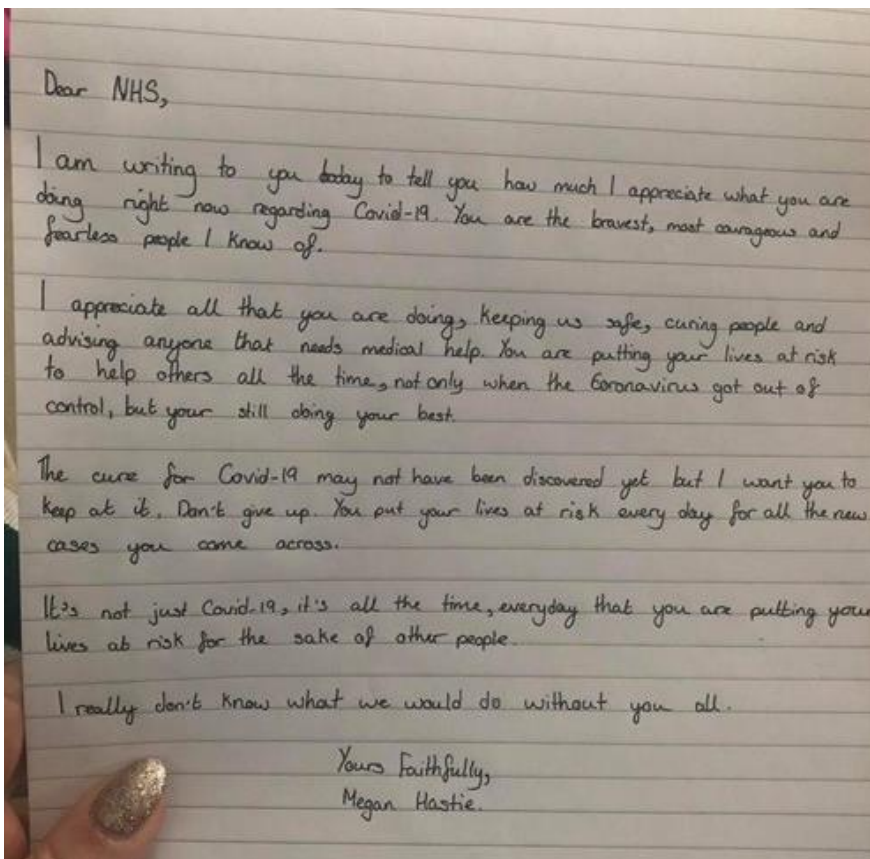 Dear NHS,
I am writing to you today to tell you how much I appreciate what you are
doing right now regarding Covid-19. You are the bravest, most courageous and
fearless people I know of.
I appreciate all that you are doing, keeping us safe, curing people and
advising anyone that needs medical help. You are putting your lives at risk
to help others all the time, not only when the Coronavirus got out of
control, but your still doing your best.
The cure for Covid-19 may not have been discovered yet but I want you to
keep at it. Don't give up. You put your lives at risk every day for all the new
cases you come across.
It's not just Covid-19, it's all the time, everyday that you are putting your
lives at risk for the sake of other people.
I really don't know what we would do without you all.
Yours Faithfully,
Megan Hastie.